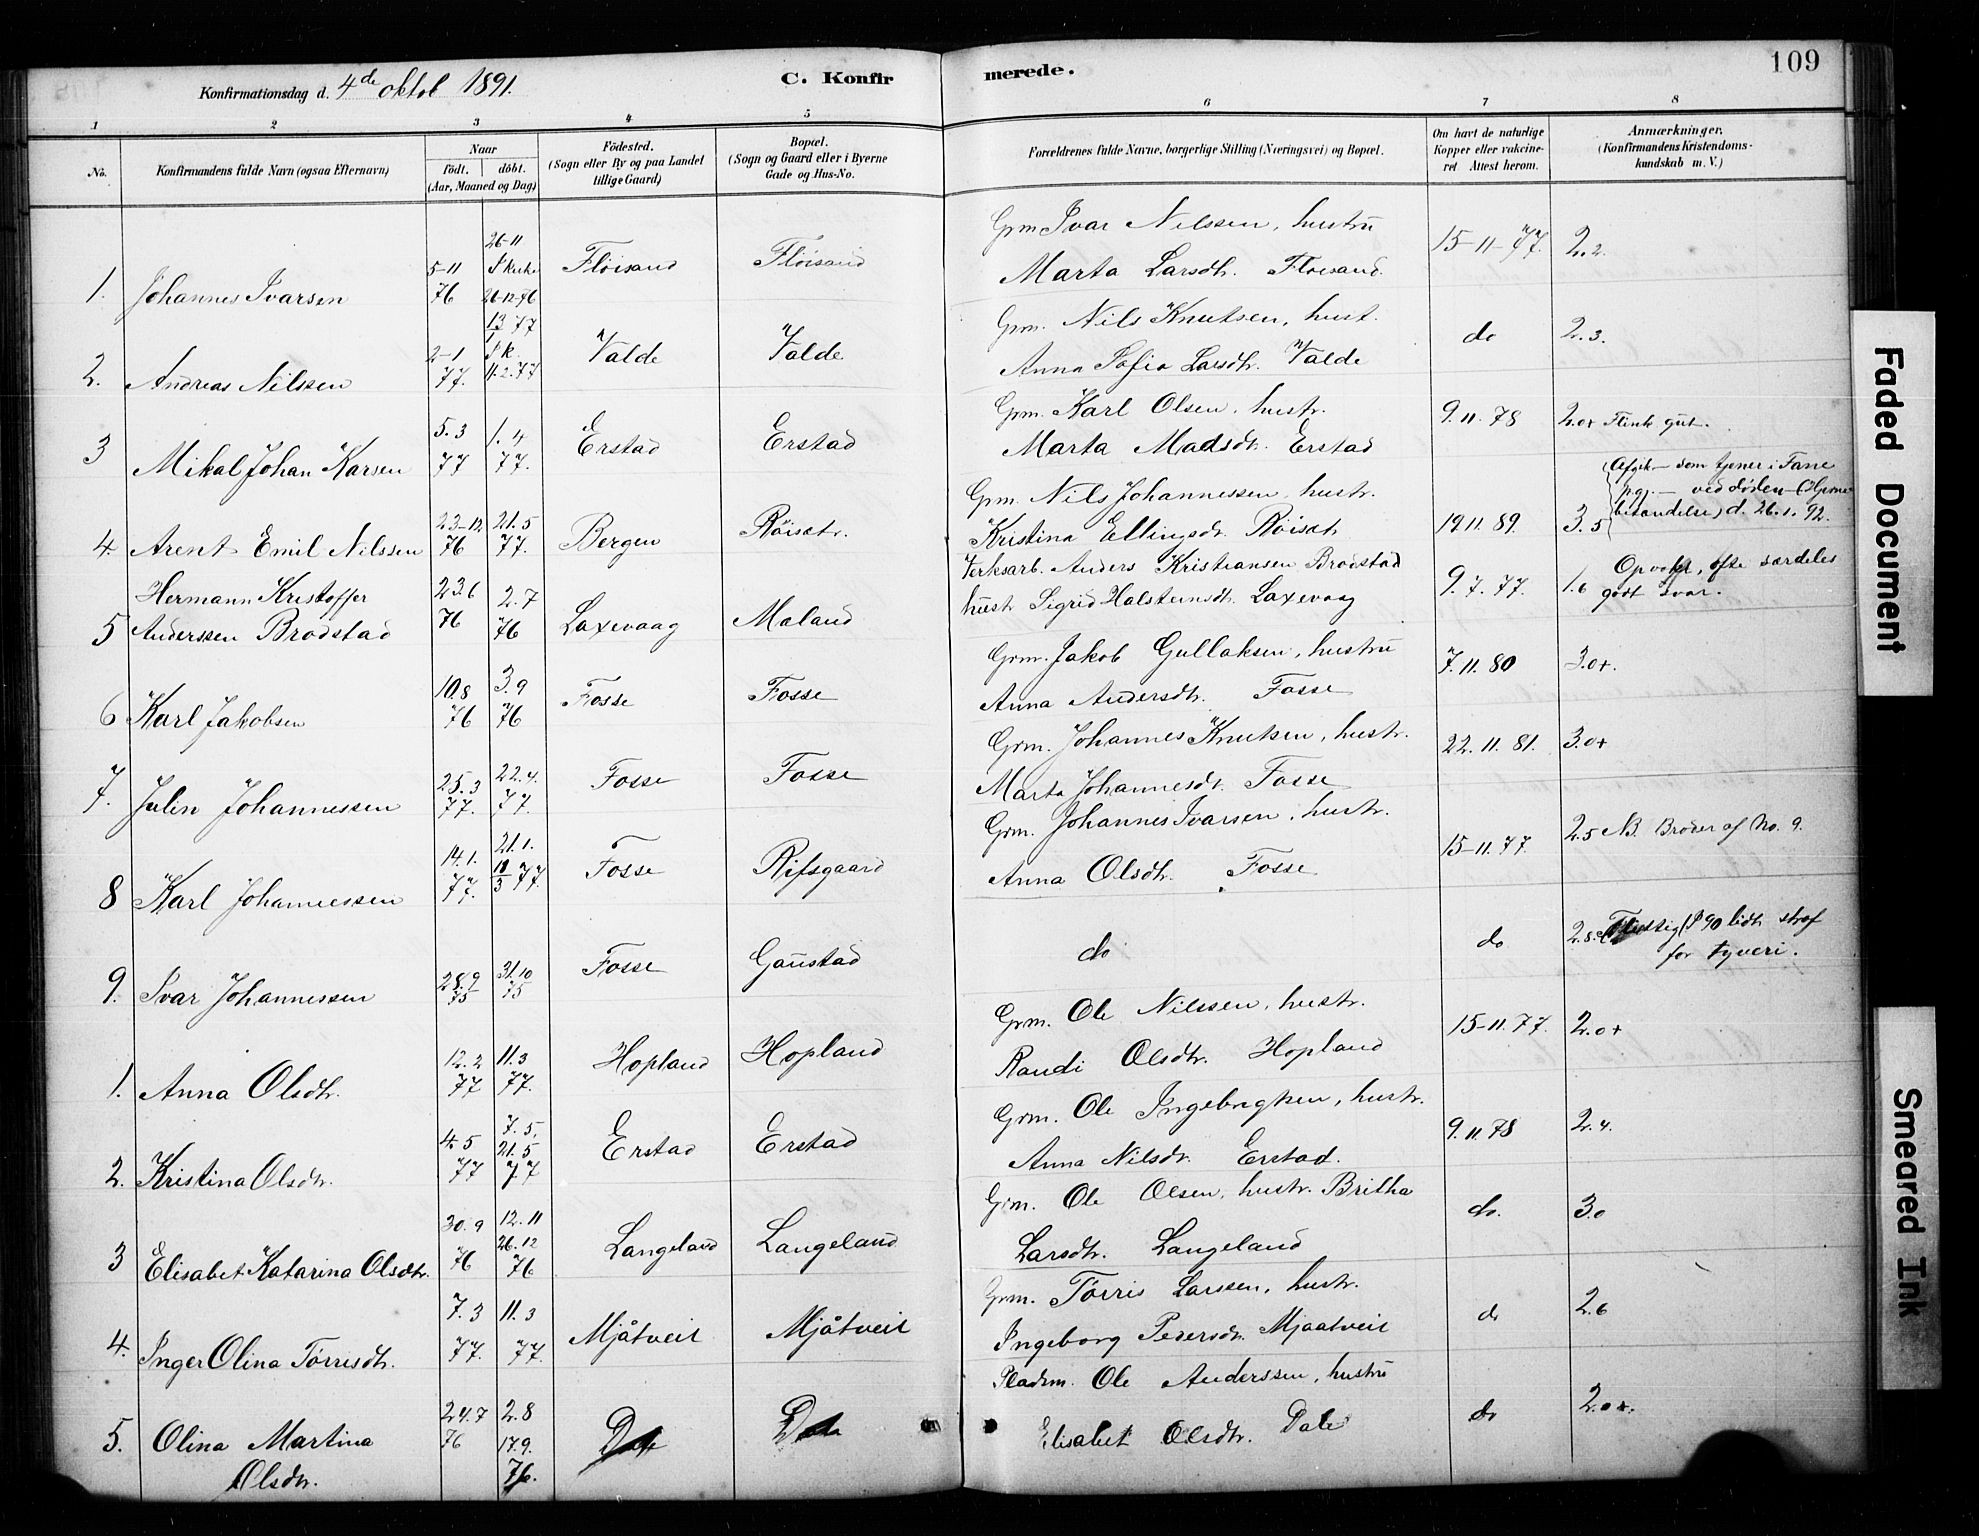 109
Konfirmationsdag d. 4de oktob 1891.
C. Konfirmerede.
1 2 3 4 5 6 7 8
No.
Konfirmandens fulde Navn (ogsaa Efternavn)
Naar
födt. döbt.
(Aar, Maaned og Dag)
Födested.
(Sogn eller By og paa Landet
tillige Gaard)
Bopæl.
(Sogn og Gaard eller i Byerne
Gade og Hus-No.
Forældrenes fulde Navne, borgerlige Stilling (Næringsvei) og Bopæl.
Om havt de naturlige
Kopper eller vakcine-
ret Attest herom.
Anmærkninger.
(Konfirmandens Kristendoms-
kundskab m. V.)
1. Johannes Ivarsen
5-11 76
26-11
26-12-76
Flöisand
Flöisand
Grm Ivar Nilssen, hustru
Marta Larsdtr. Flöisand.
15-11-77.
2.2.
2. Andreas Nilssen
2-1 77.
13/1 77
Sk.
11.2.77
Valde
Valde
Grm. Nils Knutsen, hust.
Anna Sofia Larsdtr. Valde
do
2.3.
3 Mikal Johan Karsen
5.3 77
1.4 77.
Erstad
Erstad
Grm. Karl Olsen, hustr.
Marta Madsdtr. Erstad
9.11.78
2.0+ Flink gut.
4. Arent Emil Nilssen
23-12 76
21.5 77.
Bergen
Röisetr.
Grm. Nils Johannessen, hustr.
Kristina Ellingsdr. Röisetr
19 11. 89.
3.5
Afgik – som tjener i Fane
pgj. – ved döden – (Hjerne
betændelse) d. 26.1.92.
Hermann Kristoffer
5 Anderssen Brodstad
23.6 76
2.7 76
Laxevaag
Moland
Verksarb. Anders Kristiansen Brodstad
hustr Sigrid Halsteinsdt. Laxevaag
9.7.77.
1.6
Opvakt, ofte særdeles
godt Svar.
6 Karl Jakobsen
10.8 76
3.9 76
Fosse
Fosse
Grm. Jakob Gullaksen, hustru
Anna Andersdtr. Fosse
7.11.80
3.0+.
7. Julin Johannessen
25.3 77.
22.4. 77.
Fosse
Fosse
Grm. Johannes Knutsen, hustr.
Marta Johannesdt. Fosse
22.11.81.
3.0+
8 Karl Johannessen
14.1. 77.
21.1.
18/3 77.
Fosse
Rifsgaard
Grm. Johannes Ivarsen, hustr.
Anna Olsdtr. Fosse
15-11.77.
2.5 NB. Broder af No. 9.
9. Ivar Johannessen
28.9 75
31.10 75
Fosse
Gaustad
do
do
2.8. Flittig (I 90 lidt straf
for tyveri.
1. Anna Olsdtr.
12.2 77
11.3 77.
Hopland
Hopland
Grm. Ole Nilssen, hustr.
Randi Olsdtr. Hopland
15-11.77.
2.0+
2. Kristina Olsdtr.
4.5 77
7.5.
21.5 77
Erstad
Erstad
Grm. Ole Ingebrigtsen, hustr.
Anna Nilsdr. Erstad.
9.11.78
2.4.
3 Elisabet Katarina Olsdtr.
30.9 76
12.11
26.12 76
Langeland
Langeland
Grm. Ole Olsen, hustr. Britha
Larsdtr. Langeland
do.
3.0
4. Inger Olina Törrisdtr.
7.3 77.
11.3 77.
Mjåtveit
Mjåtveit
Grm. Törris Larssen, hustr.
Ingeborg Pedersdtr. Mjaatveit
do
2.6
5. Olina Martina
Olsdtr.
24.7 76
2.8
17.9. 76.
Dale
Dale
Pladsm. Ole Anderssen, hustru
Elisabet Olsdtr. Dale
do
2.0+.
Faded Document
Smeared Ink